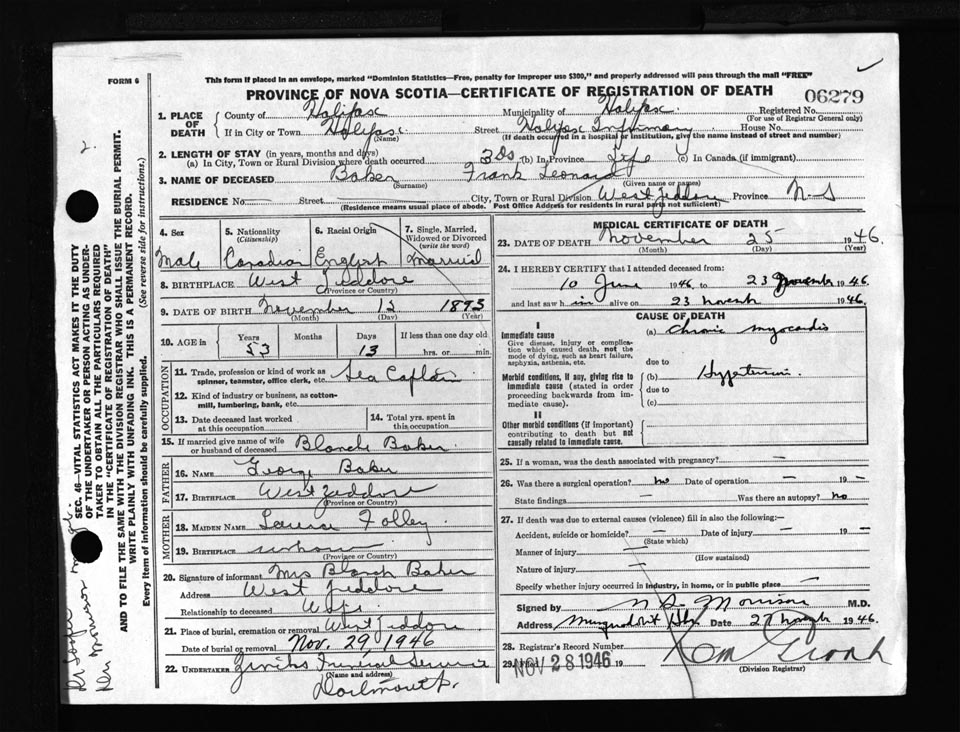 FORM 6
This form if placed in an envelope, marked "Dominion Statistics—Free, penalty for improper use $300," and properly addressed will pass through the mail "FREE"
PROVINCE OF NOVA SCOTIA—CERTIFICATE OF REGISTRATION OF DEATH
06279
1. PLACE OF DEATH
County of Halifax
Municipality of Halifax
Registered No.
(For use of Registrar General only)
If in City or Town Halifax
(Name)
Street Halifax Infirmary House No.
(If death occurred in a hospital or institution, give the name instead of street and number)
2. LENGTH OF STAY (in years, months and days)
(a) In City, Town or Rural Division where death occurred 3 ds (b) In Province Life (c) In Canada (if immigrant)
3. NAME OF DECEASED Baker Frank Leonard
(Surname) (Given name or names)
RESIDENCE No. Street City, Town or Rural Division West Jeddore Province N-S
(Residence means usual place of abode. Post Office Address for residents in rural parts not sufficient)
4. Sex
Male
5. Nationality
(Citizenship)
Canadian
6. Racial Origin
English
7. Single, Married, Widowed or Divorced
(write the word)
Married
8. BIRTHPLACE West Jeddore
(Province or Country)
9. DATE OF BIRTH November 12 1893
(Month) (Day) (Year)
10. AGE in
Years Months Days If less than one day old
53 13 hrs. or min.
OCCUPATION
11. Trade, profession or kind of work as spinner, teamster, office clerk, etc. Sea Captain
12. Kind of industry or business, as cotton-mill, lumbering, bank, etc.
13. Date deceased last worked at this occupation
14. Total yrs. spent in this occupation
15. If married give name of wife or husband of deceased Blanche Baker
FATHER
16. NAME George Baker
17. BIRTHPLACE West Jeddore
(Province or Country)
MOTHER
18. MAIDEN NAME Folley
19. BIRTHPLACE
(Province or Country)
20. Signature of informant Mrs Blanch Baker
Address West Jeddore
Relationship to deceased Wife
21. Place of burial, cremation or removal West Jeddore
Date of burial or removal Nov. 29, 1946
22. UNDERTAKER Funeral Service
(Name and address)
Dartmouth
MEDICAL CERTIFICATE OF DEATH
23. DATE OF DEATH November 25 1946.
(Month) (Day) (Year)
24. I HEREBY CERTIFY that I attended deceased from:
10 June 1946 to 23 November 1946
and last saw him alive on 23 Novemb 1946
CAUSE OF DEATH
I
Immediate cause
Give disease, injury or complication which caused death, not the mode of dying, such as heart failure, asphyxia, asthenia, etc.
(a) Chronic myocardis
due to
Morbid conditions, if any, giving rise to immediate cause (stated in order proceeding backwards from immediate cause).
(b) Hypertension
due to
(c)
II
Other morbid conditions (if important) contributing to death but not causally related to immediate cause.
25. If a woman, was the death associated with pregnancy? —
26. Was there a surgical operation? no Date of operation — 19 —
State findings — Was there an autopsy? no
27. If death was due to external causes (violence) fill in also the following:—
Accident, suicide or homicide? — Date of injury — 19 —
(State which)
Manner of injury —
(How sustained)
Nature of injury —
Specify whether injury occurred in industry, in home, or in public place —
Signed by Morrison M.D.
Address Date 27 Novemb 1946
28. Registrar's Record Number
29. Filed NOV 28 1946 19
(Division Registrar)
SEC. 46—VITAL STATISTICS ACT MAKES IT THE DUTY OF THE UNDERTAKER OR PERSON ACTING AS UNDERTAKER TO OBTAIN ALL THE PARTICULARS REQUIRED IN THE "CERTIFICATE OF REGISTRATION OF DEATH" AND TO FILE THE SAME WITH THE DIVISION REGISTRAR WHO SHALL ISSUE THE BURIAL PERMIT.
WRITE PLAINLY WITH UNFADING INK. THIS IS A PERMANENT RECORD.
Every item of information should be carefully supplied. (See reverse side for instructions.)
2.